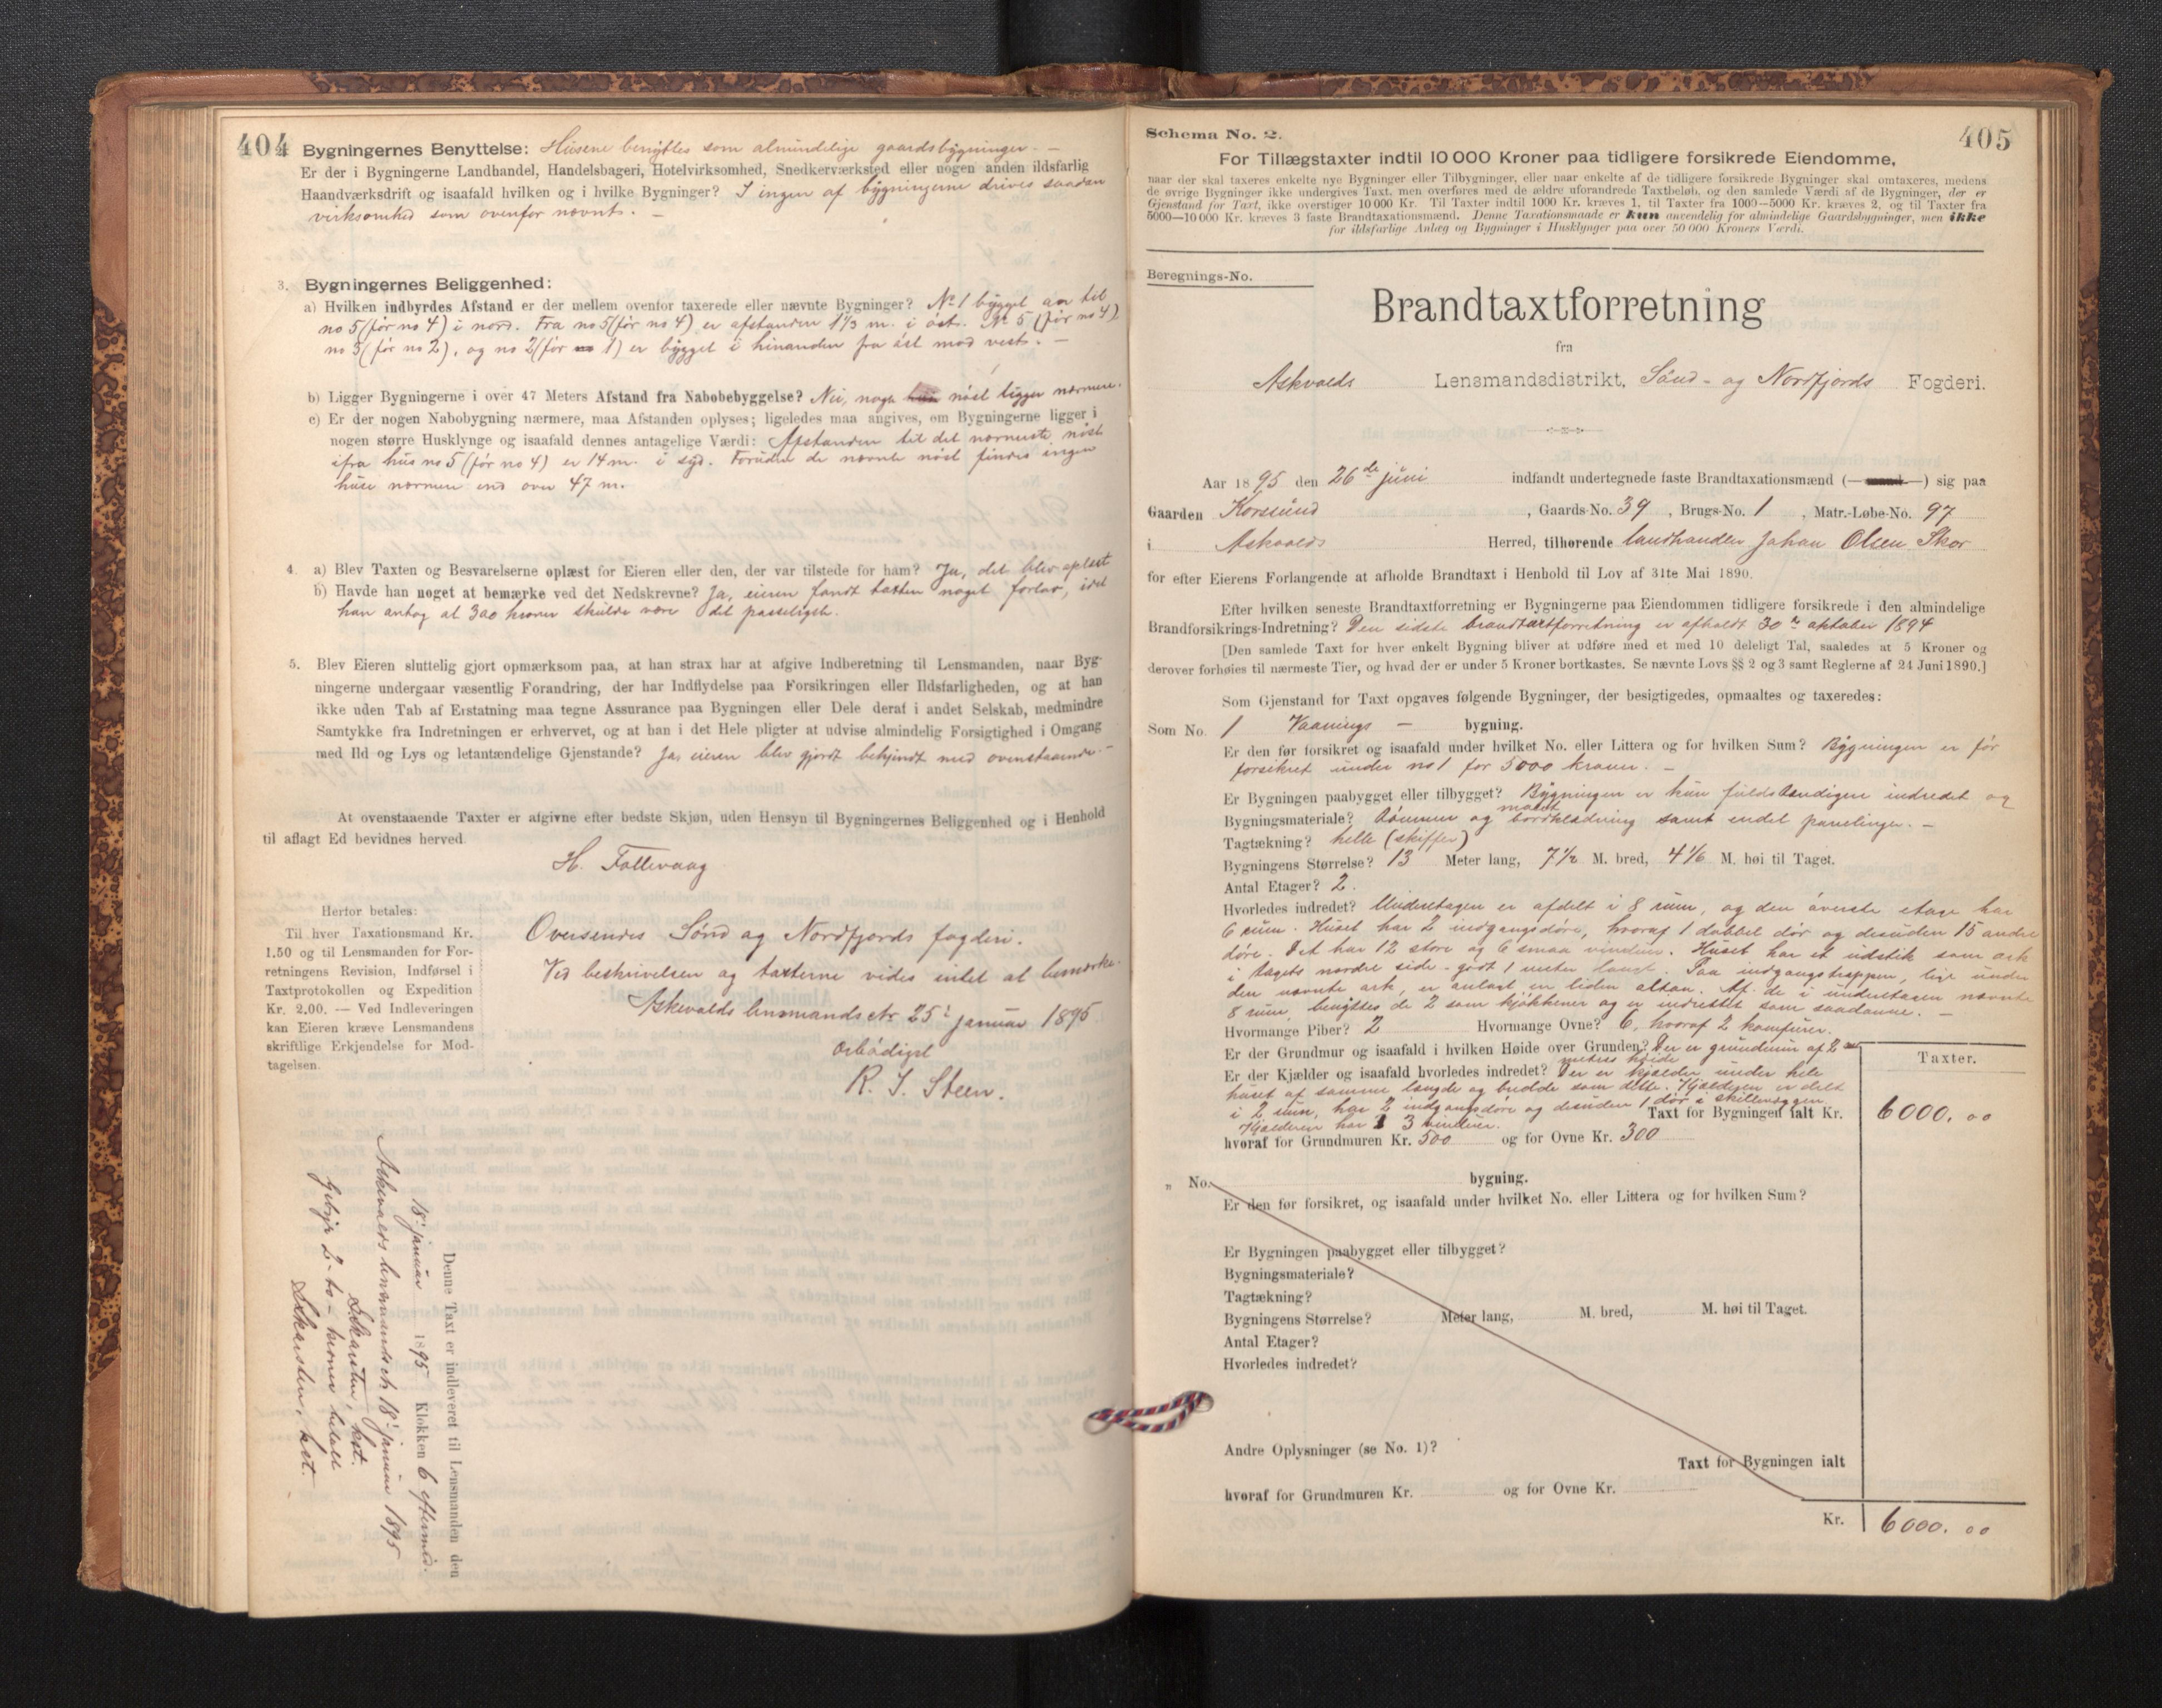 404
Bygningernes Benyttelse: Husene benyttes som almindelige gaardsbygninger. —
Er der i Bygningerne Landhandel, Handelsbageri, Hotelvirksomhed, Snedkerværksted eller nogen anden ildsfarlig
Haandværksdrift og isaafald hvilken og i hvilke Bygninger? I ingen af bygningerne drives saadan
virksomhed som ovenfor nævnt. —
3. Bygningernes Beliggenhed:
a) Hvilken indbyrdes Afstand er der mellem ovenfor taxerede eller nævnte Bygninger? No 1 bygget an til
no 5 (før no 4) i nord. Fra no 5 (før no 4) er afstanden 1 1/3 m. i øst. No 5 (før no 4)
no 3 (før no 2), og no 2 (før no 1) er bygget i hinanden fra øst mod vest. —
b) Ligger Bygningerne i over 47 Meters Afstand fra Nabobebyggelse? Nei, nogle nøst ligger nærmere.
c) Er der nogen Nabobygning nærmere, maa Afstanden oplyses; ligeledes maa angives, om Bygningerne ligger i
nogen større Husklynge og isaafald dennes antagelige Værdi: Afstanden til det nærmeste nøst
ifra hus no 5 (før no 4) er 14 m. i syd. Foruden de nævnte nøst findes ingen
huse nærmere end over 47 m.
4. a) Blev Taxten og Besvarelserne oplæst for Eieren eller den, der var tilstede for ham? Ja, det blev oplæst
b) Havde han noget at bemærke ved det Nedskrevne? Ja, eieren fandt taxten noget forlav, idet
han antog at 300 kroner skulde være det passeligste.
5. Blev Eieren sluttelig gjort opmærksom paa, at han strax har at afgive Indberetning til Lensmanden, naar Byg-
ningerne undergaar væsentlig Forandring, der har Indflydelse paa Forsikringen eller Ildsfarligheden, og at han
ikke uden Tab af Erstatning maa tegne Assurance paa Bygningen eller Dele deraf i andet Selskab, medmindre
Samtykke fra Indretningen er erhvervet, og at han i det Hele pligter at udvise almindelig Forsigtighed i Omgang
med Ild og Lys og letantændelige Gjenstande? Ja, eieren blev gjordt bekjendt med ovenstaaende. —
At ovenstaaende Taxter er afgivne efter bedste Skjøn, uden Hensyn til Bygningernes Beliggenhed og i Henhold
til aflagt Ed bevidnes herved.
H. Follevaag
Herfor betales:
Til hver Taxationsmand Kr.
1.50 og til Lensmanden for For-
retningens Revision, Indførsel i
Taxtprotokollen og Expedition
Kr. 2.00. — Ved Indleveringen
kan Eieren kræve Lensmandens
skriftlige Erkjendelse for Mod-
tagelsen.
Oversendes Sønd og Nordfjords fogderi.
Ved beskrivelsen og taxterne vides intet at bemærke.
Askevolds lensmandsktr 25' januar 1895
ærbødigst
R. J. Steen.
Denne Taxt er indleveret til Lensmanden den
18' januar 1895 Klokken 6 eftermid.
Askevolds lensmandsktr 18' januar 1895
Gebyr 2 – to – kroner betalt
405
Schema No. 2.
For Tillægstaxter indtil 10 000 Kroner paa tidligere forsikrede Eiendomme,
naar der skal taxeres enkelte nye Bygninger eller Tilbygninger, eller naar enkelte af de tidligere forsikrede Bygninger skal omtaxeres, medens
de øvrige Bygninger ikke undergives Taxt, men overføres med de ældre uforandrede Taxtbeløb, og den samlede Værdi af de Bygninger, der er
Gjenstand for Taxt, ikke overstiger 10 000 Kr. Til Taxter indtil 1000 Kr. kræves 1, til Taxter fra 1000—5000 Kr. kræves 2, og til Taxter fra
5000—10 000 Kr. kræves 3 faste Brandtaxationsmænd. Denne Taxationsmaade er kun anvendelig for almindelige Gaardsbygninger, men ikke
for ildsfarlige Anlæg og Bygninger i Husklynger paa over 50 000 Kroners Værdi.
Beregnings-No.
Brandtaxtforretning
fra
Askvolds Lensmandsdistrikt, Sønd- og Nordfjords Fogderi.
Aar 1895 den 26de juni indfandt undertegnede faste Brandtaxationsmænd (— mand —) sig paa
Gaarden Korssund, Gaards-No. 39, Brugs-No. 1, Matr.-Løbe-No. 97
i Askvolds Herred, tilhørende landhandler Johan Olsen Skor
for efter Eierens Forlangende at afholde Brandtaxt i Henhold til Lov af 31te Mai 1890.
Efter hvilken seneste Brandtaxtforretning er Bygningerne paa Eiendommen tidligere forsikrede i den almindelige
Brandforsikrings-Indretning? Den sidste brandtaxtforretning er afholdt 30te oktober 1894
[Den samlede Taxt for hver enkelt Bygning bliver at udføre med et med 10 deleligt Tal, saaledes at 5 Kroner og
derover forhøies til nærmeste Tier, og hvad der er under 5 Kroner bortkastes. Se nævnte Lovs §§ 2 og 3 samt Reglerne af 24 Juni 1890.]
Som Gjenstand for Taxt opgaves følgende Bygninger, der besigtigedes, opmaaltes og taxeredes:
Som No. 1 Vaanings — bygning.
Er den før forsikret og isaafald under hvilket No. eller Littera og for hvilken Sum? Bygningen er før
forsikret under no 1 for 5000 kroner. —
Er Bygningen paabygget eller tilbygget? Bygningen er kun fuldstændigere indredet og
malet
Bygningsmateriale? Tømmer og bordklædning samt endel panelinger. —
Tagtækning? helle (skiffer)
Bygningens Størrelse? 13 Meter lang, 7 1/2 M. bred, 4 1/6 M. høi til Taget.
Antal Etager? 2.
Hvorledes indredet? Underetagen er afdelt i 8 rum, og den øverste etage har
6 rum. Huset har 2 indgangsdøre, hvoraf 1 dobbel dør og desuden 15 andre
døre. Det har 12 store og 6 smaa vinduer. Huset har et udstik som ark
i tagets nordre side - godt 1 meter langt. Paa indgangstrappen, lige under
den nævnte ark, er anlagt en liden altan. Af de i underetagen nævnte
8 rum, benyttes de 2 som kjøkkener og er indrettet som saadanne. —
Hvormange Piber? 2 Hvormange Ovne? 6, hvoraf 2 komfurer.
Er der Grundmur og isaafald i hvilken Høide over Grunden? Der er grundmur af 2
meters høide
Er der Kjælder og isaafald hvorledes indredet? Der er kjælder under hele
huset af samme længde og bredde som dette. Kjælderen er delt
i 2 rum, har 2 indgangsdøre og desuden 1 dør i skillevæggen.
Kjælderen har 3 vinduer.
Taxter.
Taxt for Bygningen ialt Kr. 6000.00
hvoraf for Grundmuren Kr. 500 og for Ovne Kr. 300
" No. bygning.
Er den før forsikret, og isaafald under hvilket No. eller Littera og for hvilken Sum?
Er Bygningen paabygget eller tilbygget?
Bygningsmateriale?
Tagtækning?
Bygningens Størrelse? Meter lang, M. bred, M. høi til Taget.
Antal Etager?
Hvorledes indredet?
Andre Oplysninger (se No. 1)?
Taxt for Bygningen ialt
hvoraf for Grundmuren Kr. og for Ovne Kr.
Kr. 6000.00